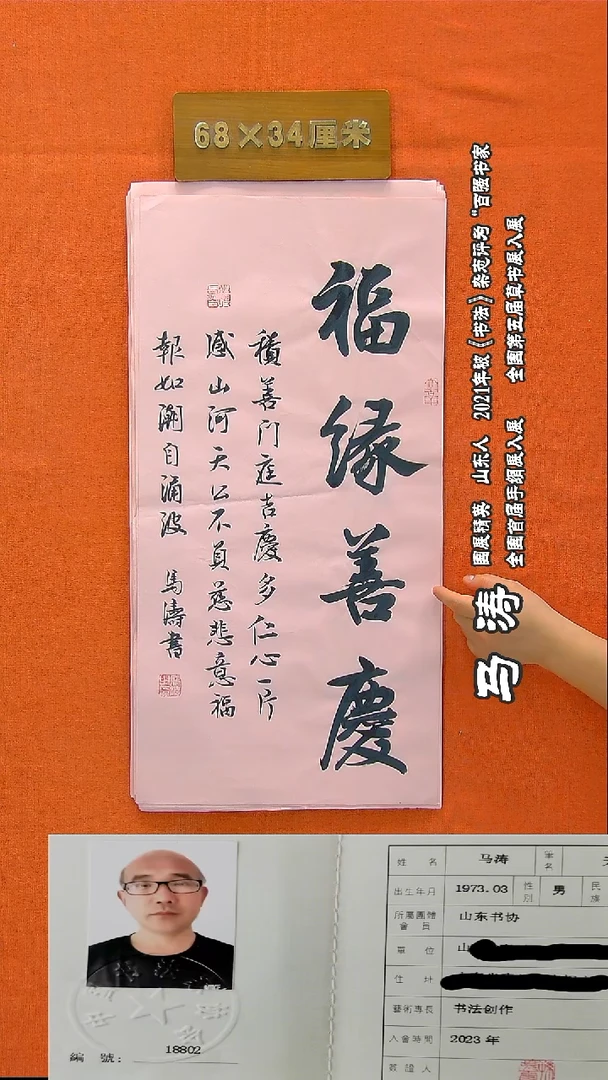 68×34厘米
福缘善慶
積善门庭吉慶多仁心一片
感山河天公不負慈悲意福
報如潮自涌波 馬濤書
马涛
国展精英 山东人 2021年被《书法》杂志评为“百强书家
全国首届手卷展入展 全国第五届草书展入展
編 號: 18802
姓 名 马涛 筆名
出生年月 1973.03 性別 男 民族
所屬團體 會員 山东书协
單 位 山
住 址
藝術專長 书法创作
入會時間 2023年
簽證人